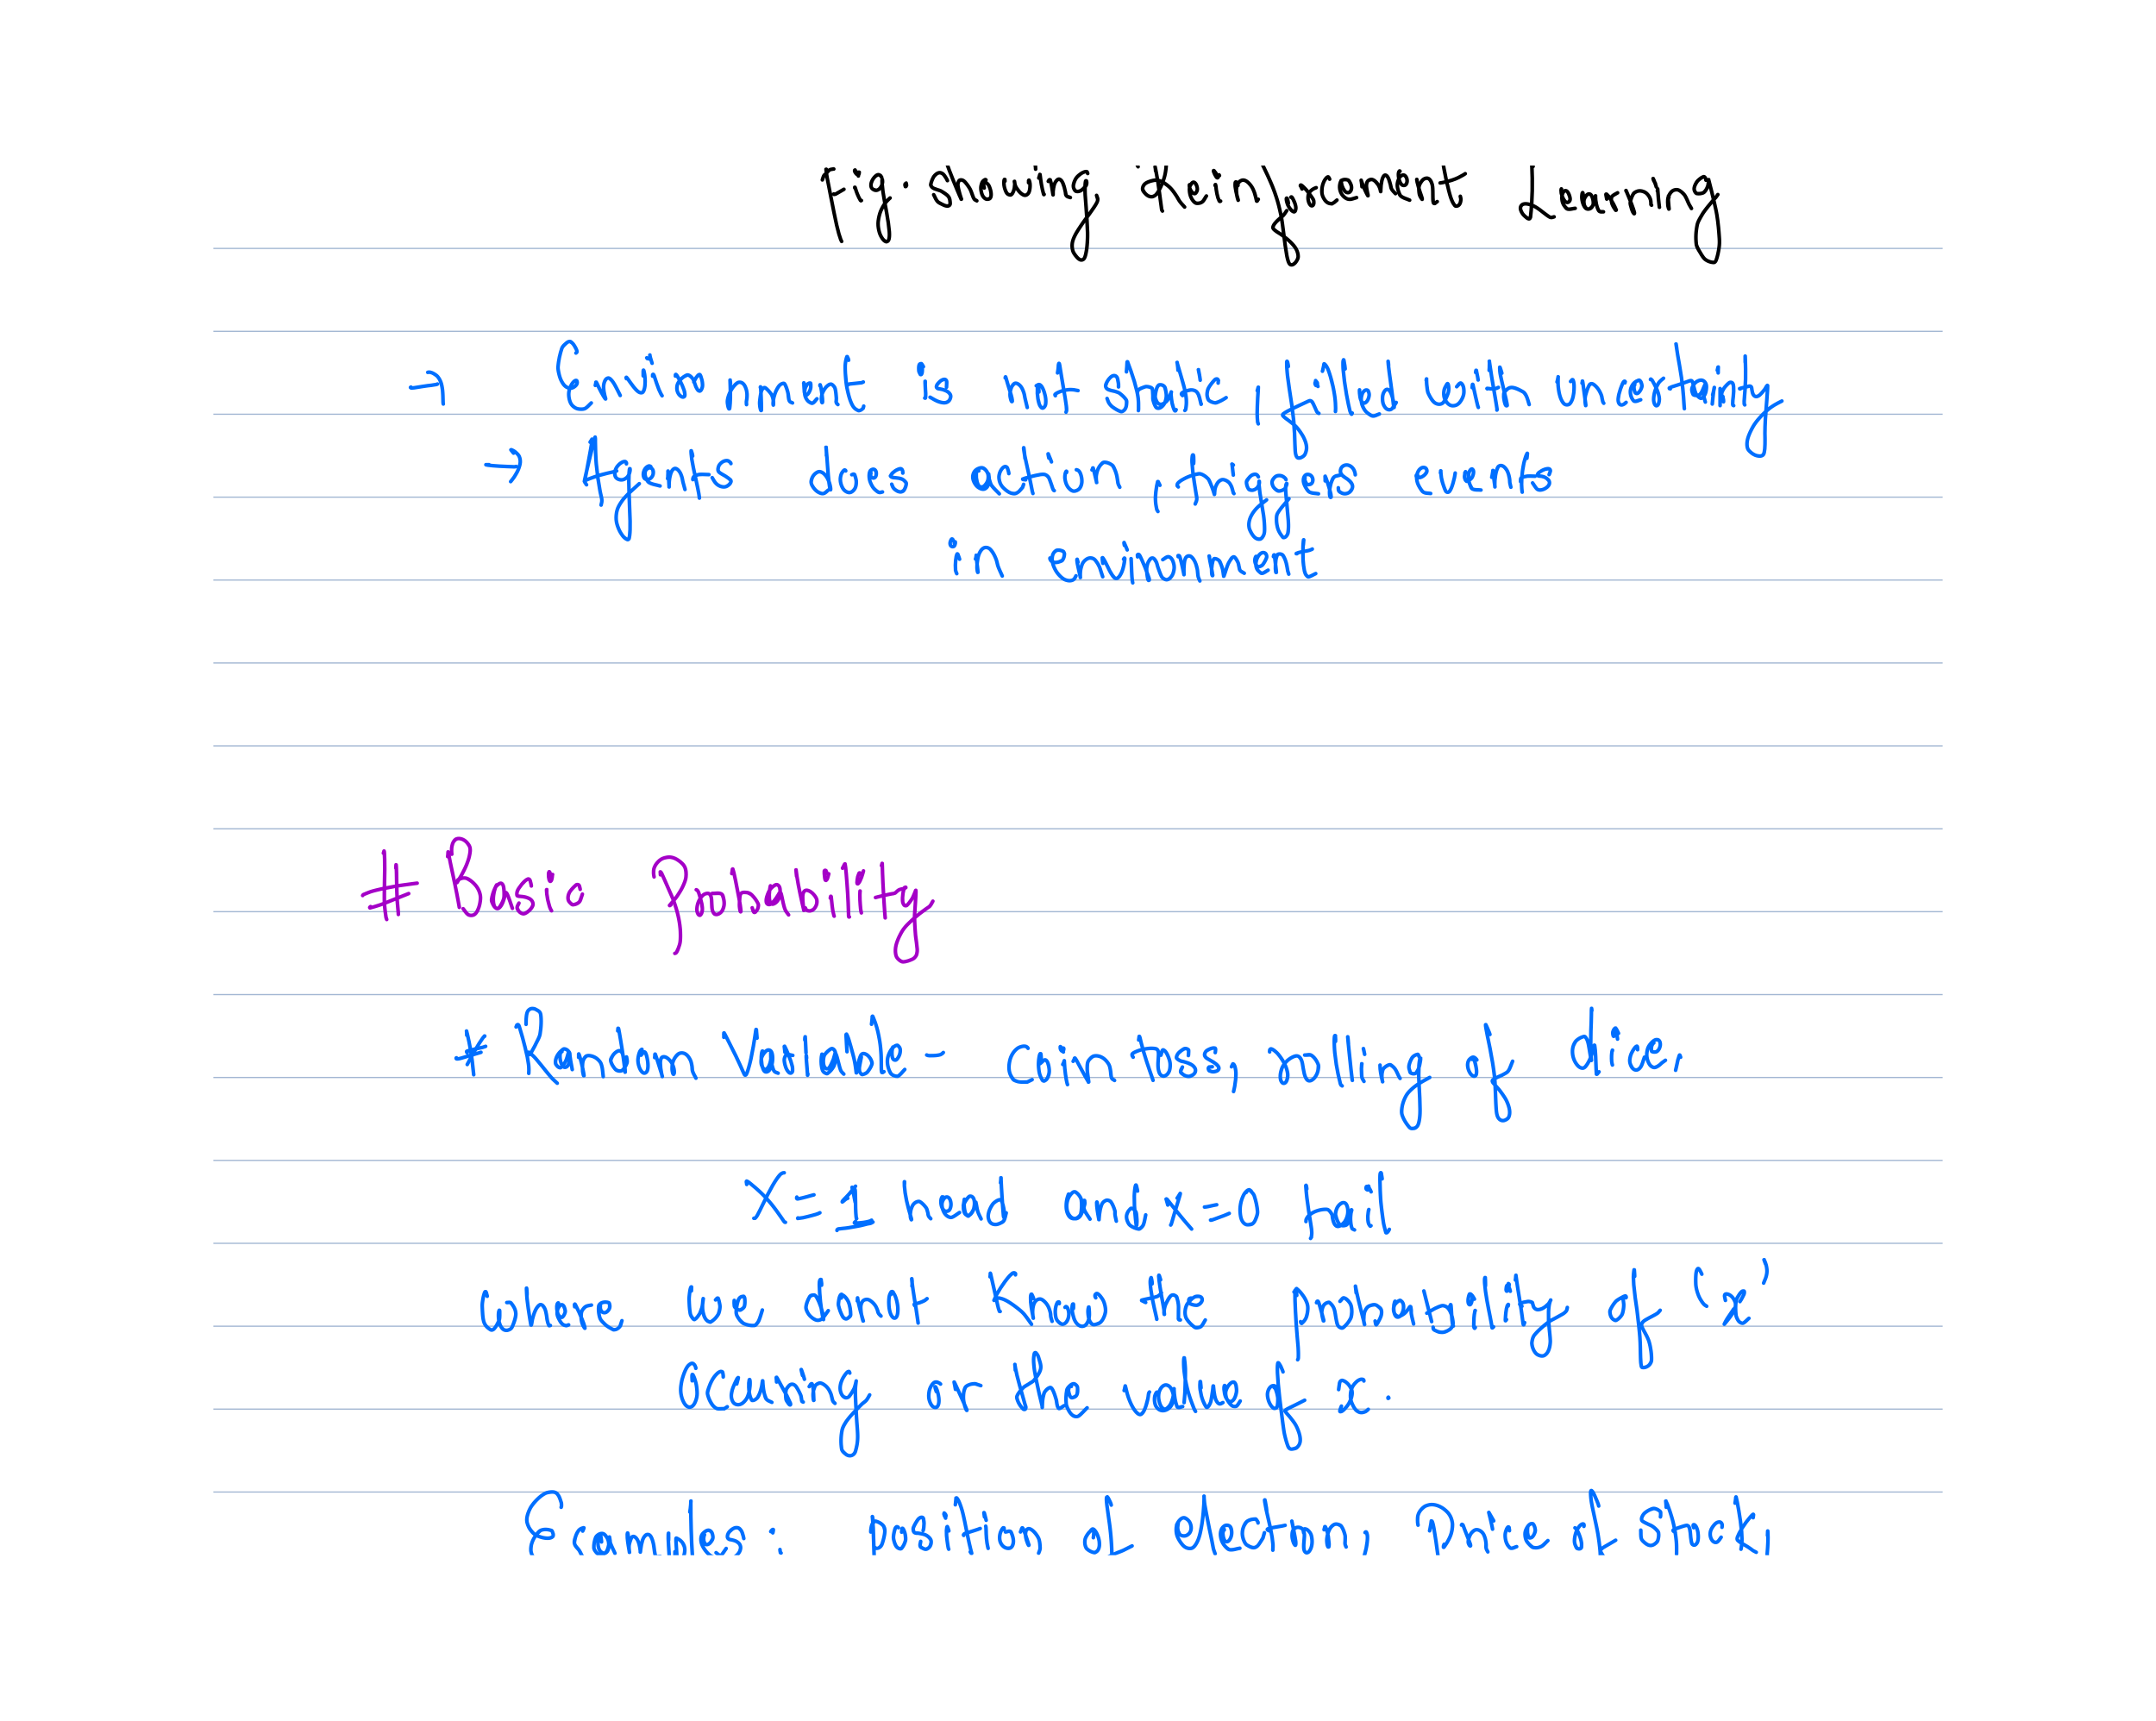 Fig: showing Reinforcement Learning
→ Environment is not static, filled with uncertainity
→ Agents does action, triggers events
in environment
# Basic Probability
* Random Variable = coin tosses, rolling of dice,
X = 1 head and x=0 tail
where we donot know the probability of 'x'
Occuring or the value of x.
Examples: position of electron, Price of stock,